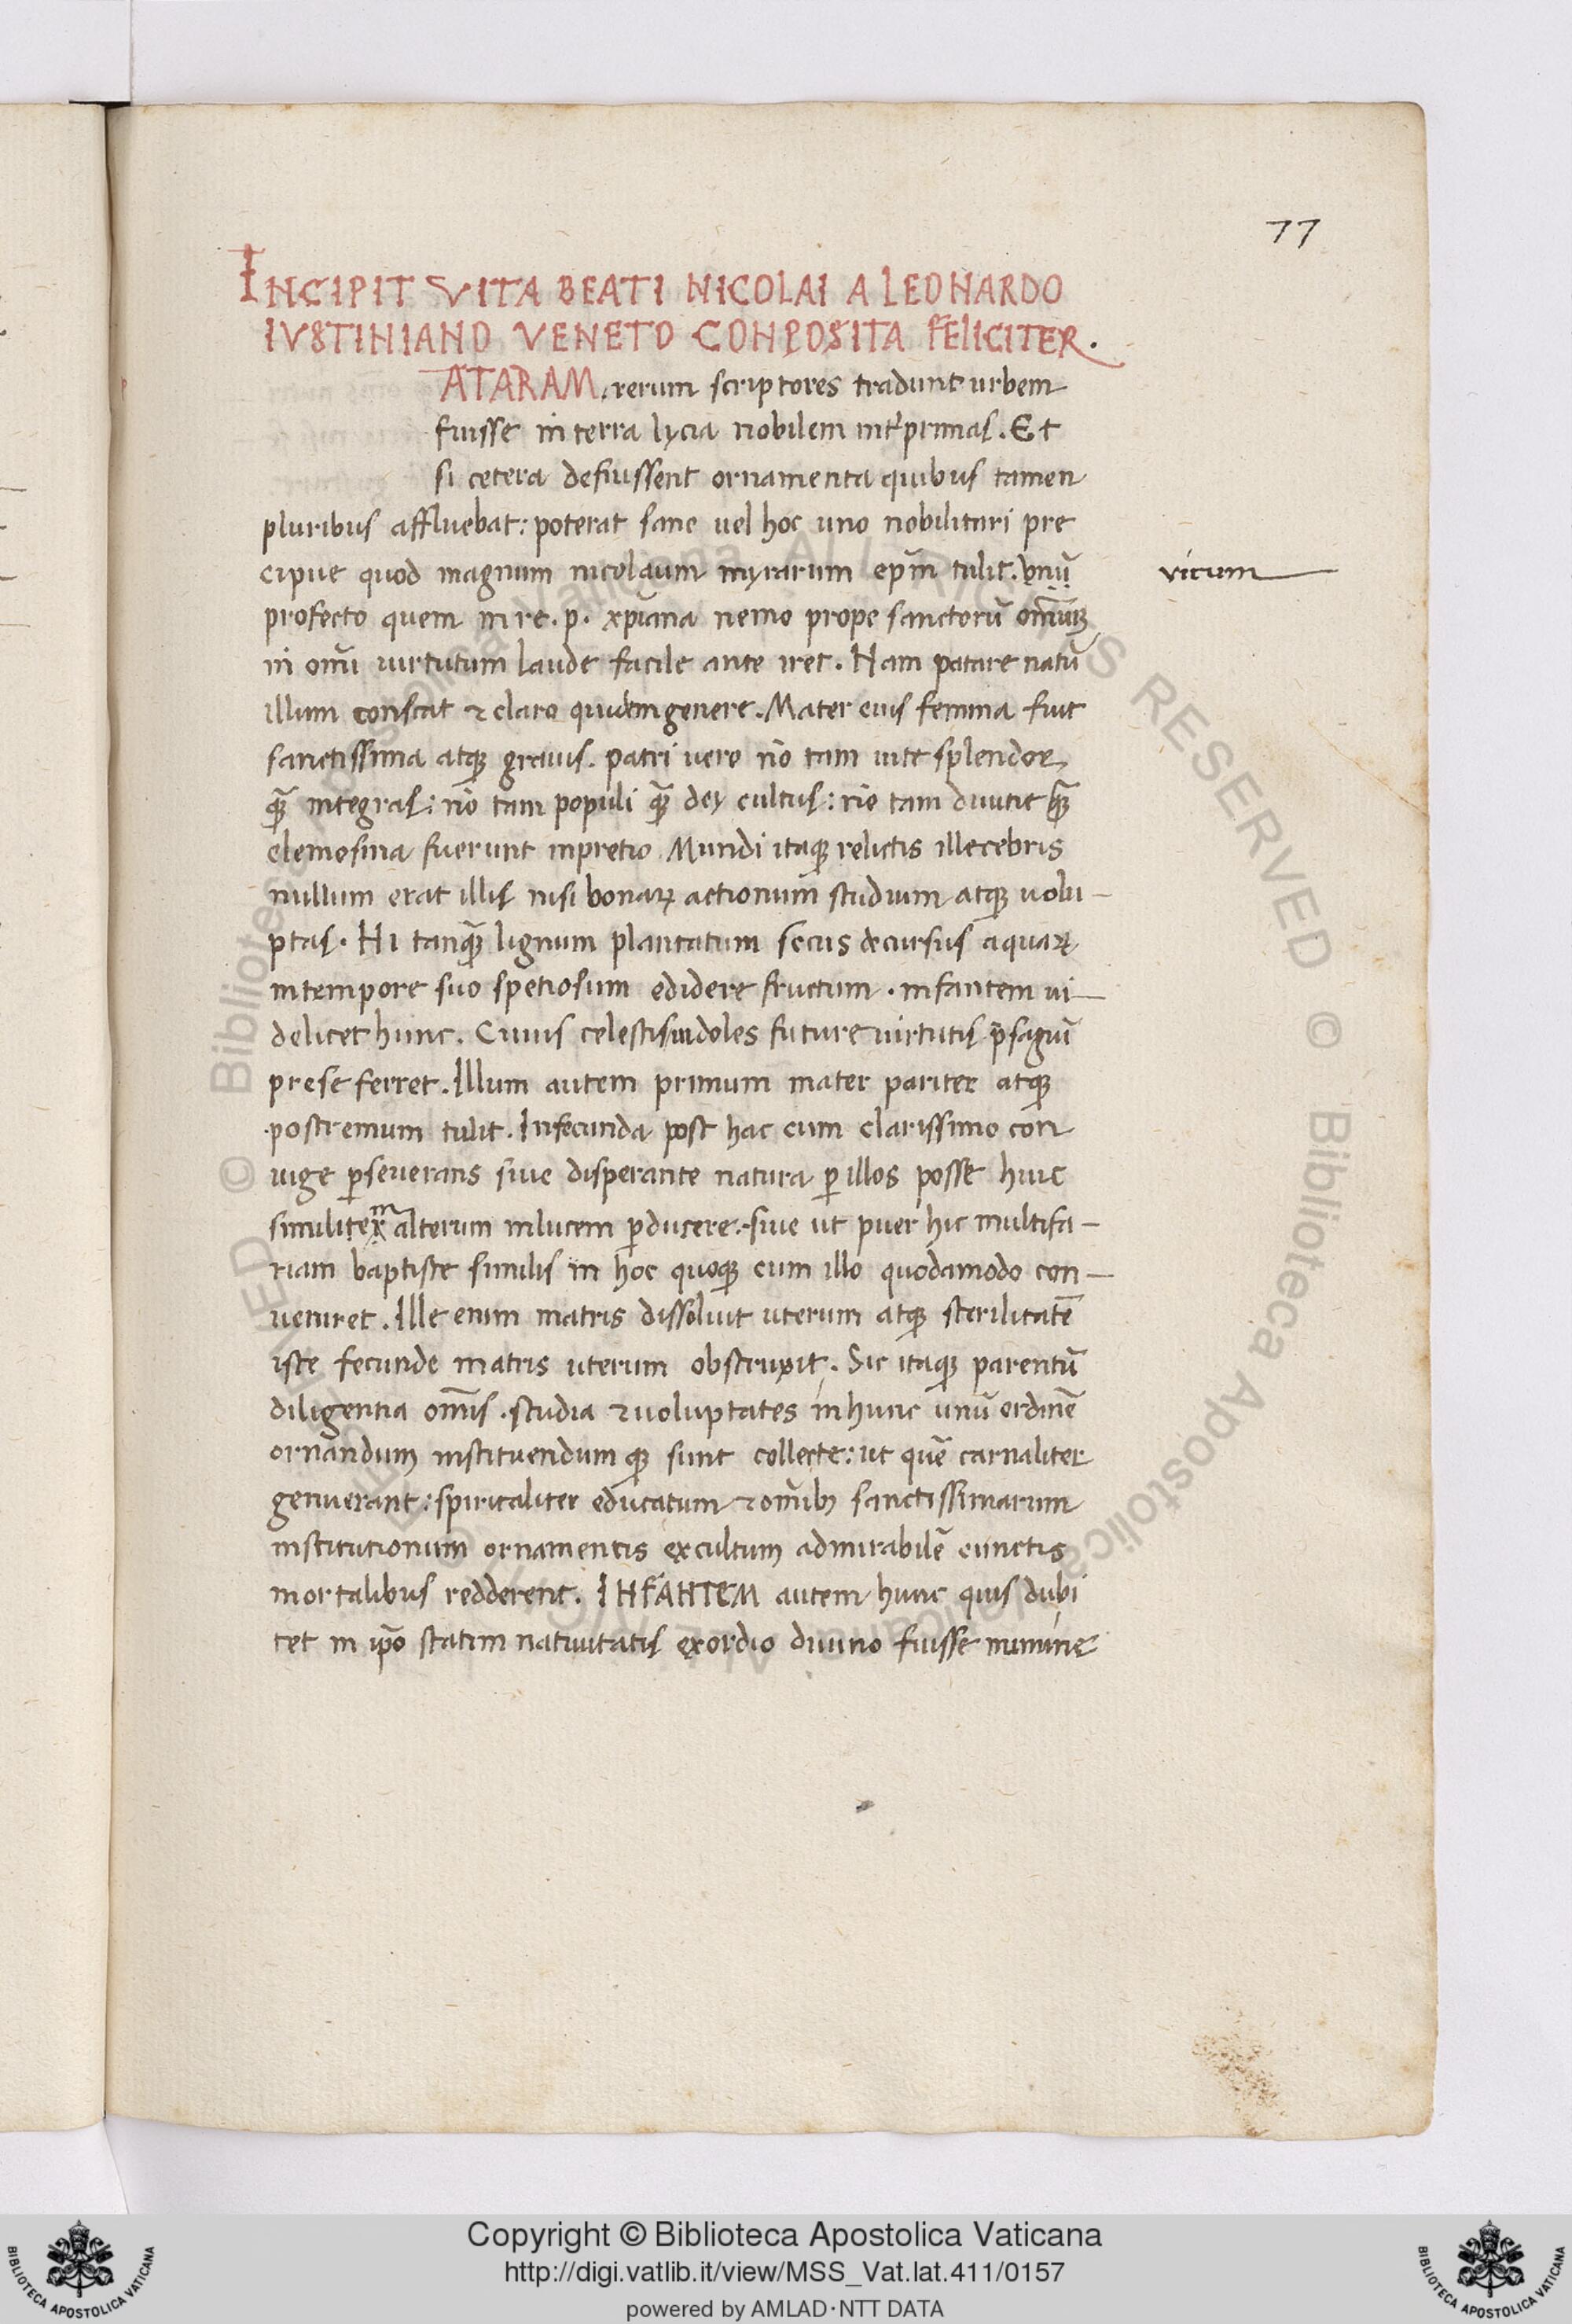 77
INCIPIT VITA BEATI NICOLAI A LEONARDO
IVSTINIANO VENETO COMPOSITA FELICITER.
ATARAM. rerum scriptores tradunt urbem
fuisse in terra lycia nobilem int̄ primas. Et
si cetera defuissent ornamenta quibus tamen
pluribus affluebat: poterat sane uel hoc uno nobilitari pre
cipue quod magnum nicolaum myrarum ep̄m tulit. vnū
vicum
profecto quem in re. p. xp̄iana nemo prope sanctorū om̄iūqꝫ
in om̄i uirtutum laude facile ante iret. Nam patare natū
illum constat & claro quidem genere. Mater eius femina fuit
sanctissima atqꝫ grauis. patri uero nō tam uite splendor
qꝫ̄ integras: nō tam populi qꝫ̄ dey cultus: nō tam diuitie qꝫ̄
elemosina fuerunt in pretio. Mundi itaqꝫ relictis illecebris
nullum erat illis nisi bonaꝝ actionum studium atqꝫ uolu-
ptas. Hi tanqꝫ̄ lignum plantatum secus decursus aquaꝝ
in tempore suo spetiosum edidere fructum. infantem ui-
delicet hunc. Cuius celestis indoles future uirtutis p̄sagiū
prese ferret. Illum autem primum mater pariter atqꝫ
postremum tulit. Infecunda post hac cum clarissimo con
iuge ꝑseuerans siue disperante natura ꝑ illos posse huic
similitexm alterum in lucem ꝑducere. siue ut puer hic multifa-
riam baptiste similis in hoc quoqꝫ cum illo quodamodo con-
ueniret. Ille enim matris dissoluit uterum atqꝫ sterilitatē
iste fecunde matris uterum obstruxit. Sic itaqꝫ parentū
diligentia om̄is. studia & uoluptates in hunc unū ordinē
ornandum instituendum qꝫ sunt collecte: ut quē carnaliter
genuerant: spiritaliter educatum & om̄ibꝫ sanctissimarum
institutionum ornamentis excultum admirabilē cunctis
mortalibus redderent. INFANTEM autem hunc quis dubi
tet in ip̄o statim natiuitatis exordio diuino fuisse numine
Copyright © Biblioteca Apostolica Vaticana
http://digi.vatlib.it/view/MSS_Vat.lat.411/0157
powered by AMLAD·NTT DATA